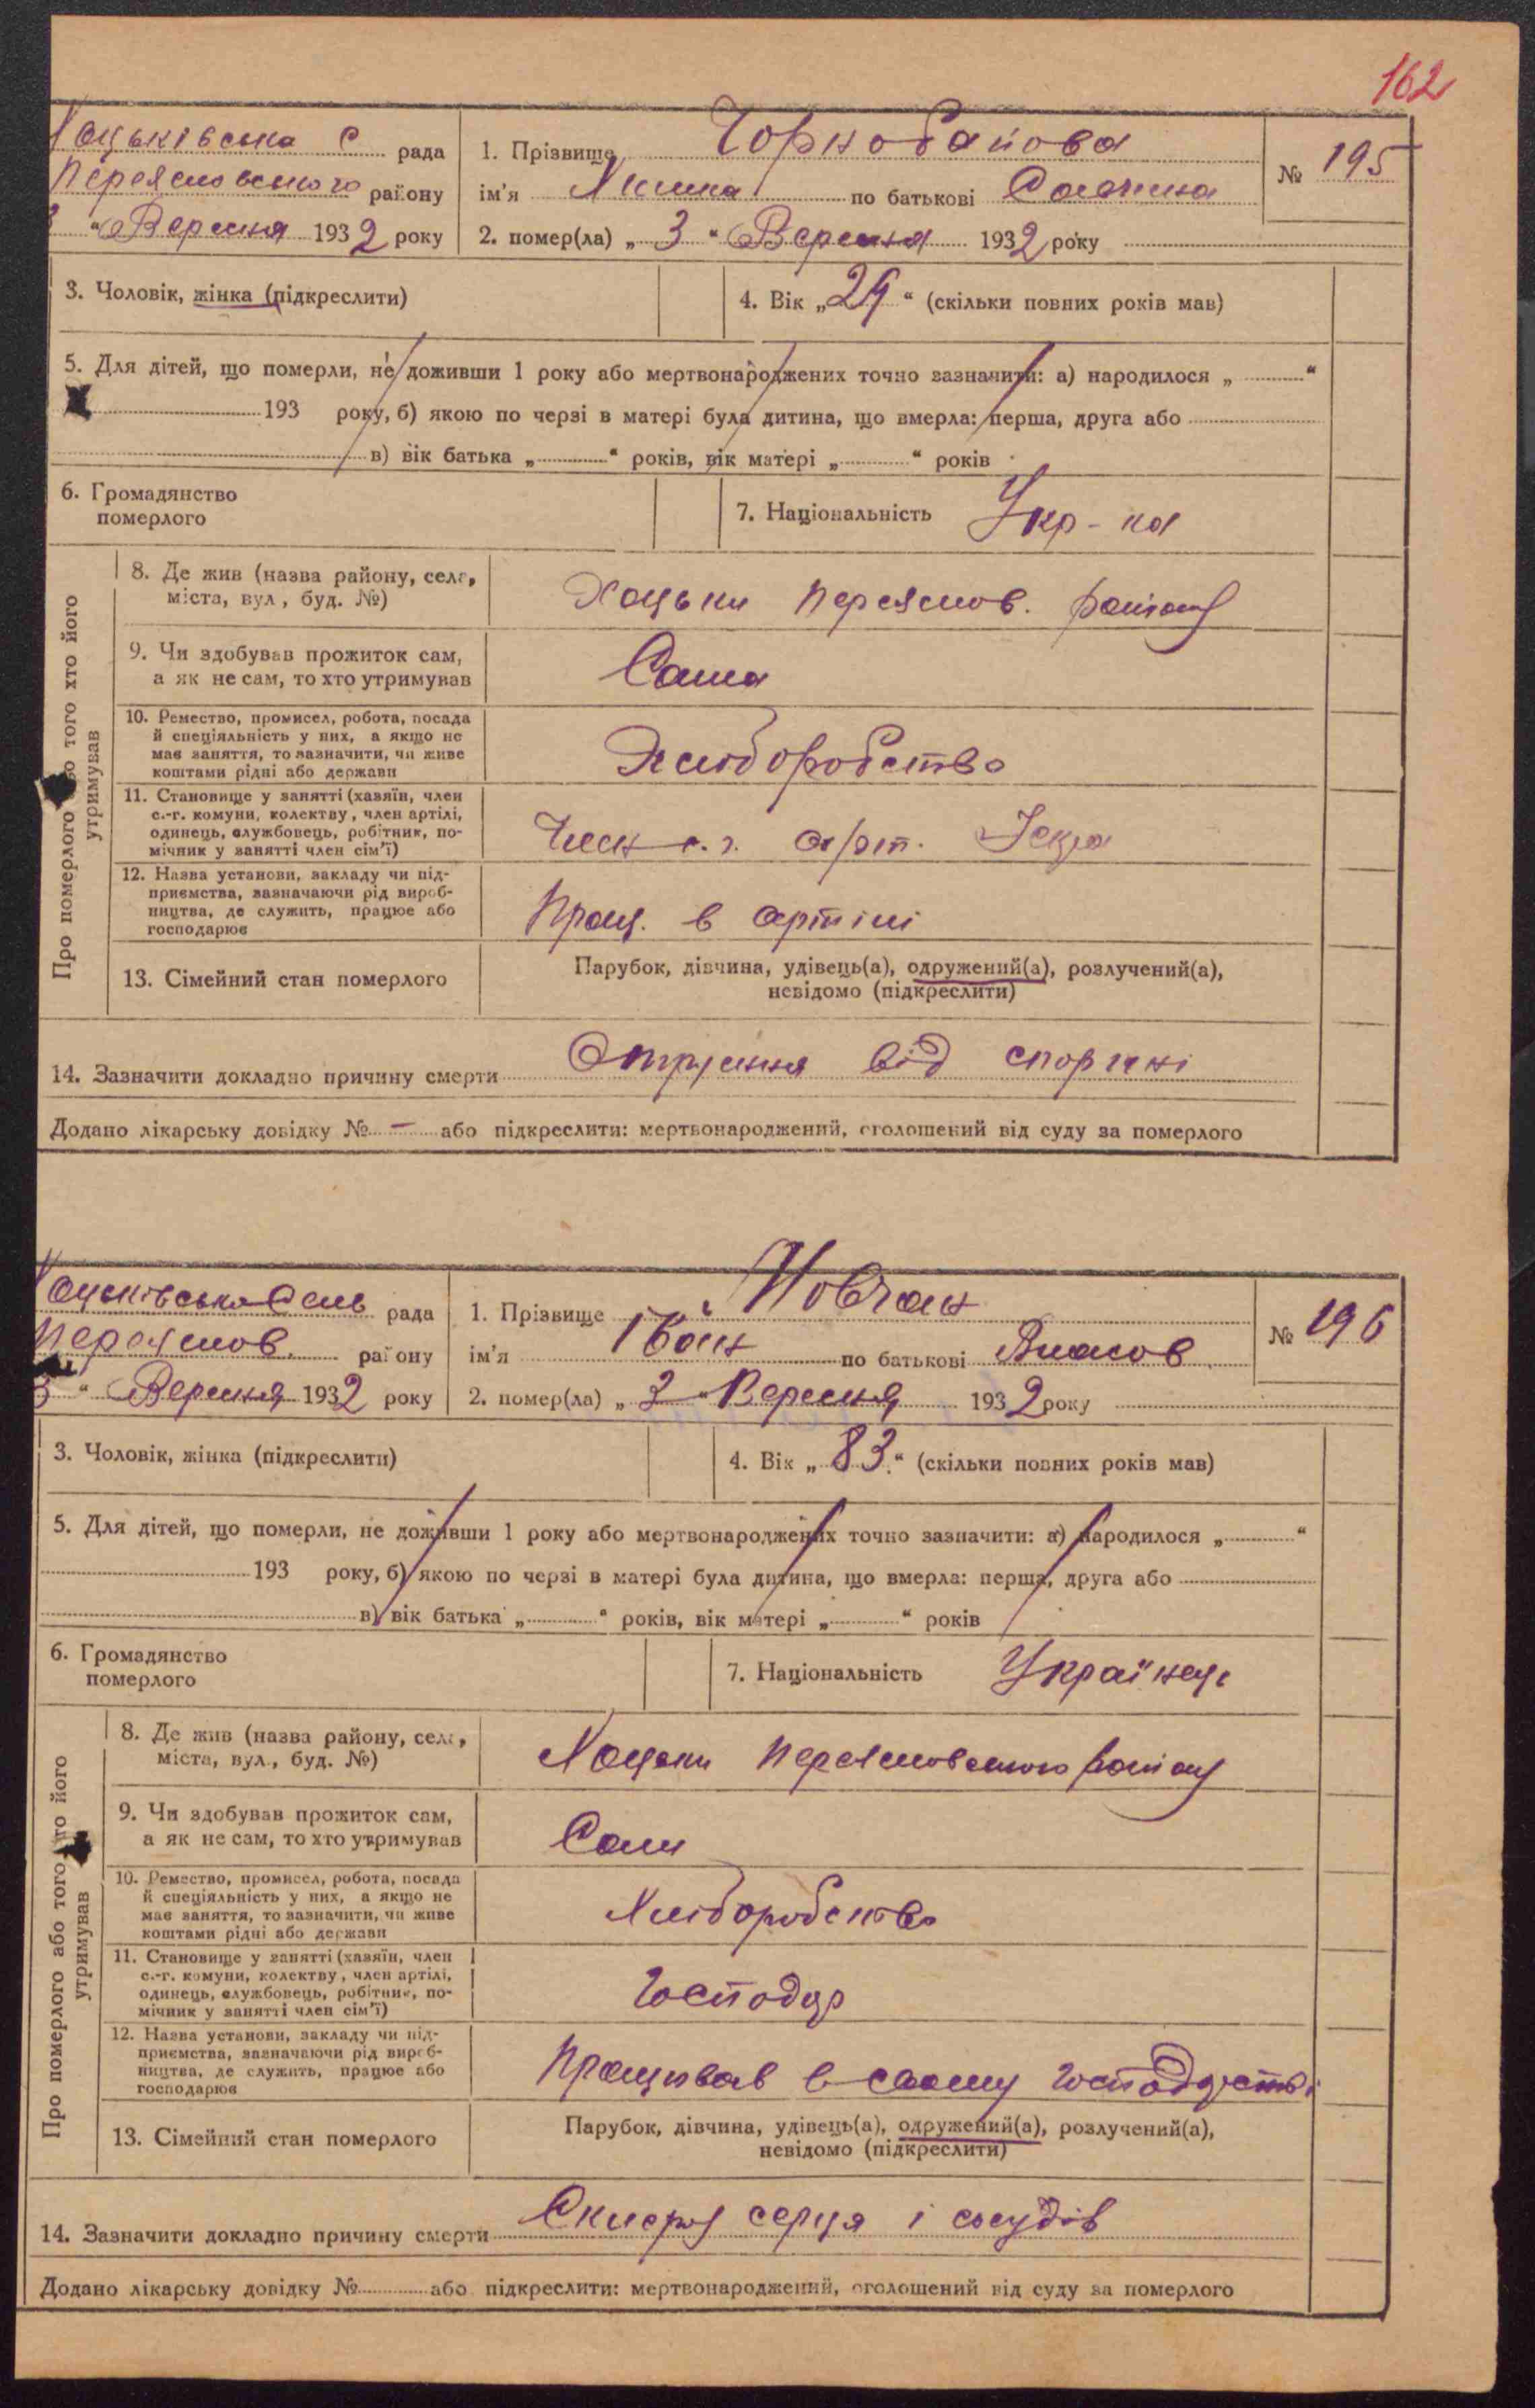 162
Хоцьківська С рада
1. Прізвище Чорнобаїова
№ 195
Переяславського району
ім'я по батькові
3 " Вересня 1932 року
2. помер(ла) „ 3 " Вересня 1932 року
3. Чоловік, жінка (підкреслити)
4. Вік „ 29 " (скільки повних років мав)
5. Для дітей, що померли, не доживши 1 року або мертвонароджених точно зазначити: а) народилося „ "
193 року, б) якою по черзі в матері була дитина, що вмерла: перша, друга або
в) вік батька „ " років, вік матері „ " років
6. Громадянство
померлого
7. Національність Укр-ка
Про померлого або того хто його
утримував
8. Де жив (назва району, села,
міста, вул., буд. №)
Хоцьки Переяслов. району
9. Чи здобував прожиток сам,
а як не сам, то хто утримував
Сама
10. Ремество, промисел, робота, посада
й спеціяльність у них, а якщо не
має заняття, то зазначити, чи живе
коштами рідні або держави
Хліборобство
11. Становище у занятті (хазяїн, член
с.-г. комуни, колектву, член артілі,
одинець, службовець, робітник, по-
мічник у занятті член сім'ї)
Член с.г. арт. Іскра
12. Назва установи, закладу чи під-
приємства, зазначаючи рід вироб-
ництва, де служить, працює або
господарює
Прац. в артілі
13. Сімейний стан померлого
Парубок, дівчина, удівець(а), одружений(а), розлучений(а),
невідомо (підкреслити)
14. Зазначити докладно причину смерти Отруєння від спорині
Додано лікарську довідку № – або підкреслити: мертвонароджений, оголошений від суду за померлого
Хоцьківська Сель рада
1. Прізвище Мовчан
№ 196
Переяслов. району
ім'я Іван по батькові Власов
3 " Вересня 1932 року
2. помер(ла) „ 3 " Вересня 1932 року
3. Чоловік, жінка (підкреслити)
4. Вік „ 83 " (скільки повних років мав)
5. Для дітей, що померли, не доживши 1 року або мертвонароджених точно зазначити: а) народилося „ "
193 року, б) якою по черзі в матері була дитина, що вмерла: перша, друга або
в) вік батька „ " років, вік матері „ " років
6. Громадянство
померлого
7. Національність Українець
Про померлого або того хто його
утримував
8. Де жив (назва району, села,
міста, вул., буд. №)
Хоцьки Переясловського району
9. Чи здобував прожиток сам,
а як не сам, то хто утримував
Сам
10. Ремество, промисел, робота, посада
й спеціяльність у них, а якщо не
має заняття, то зазначити, чи живе
коштами рідні або держави
Хліборобство
11. Становище у занятті (хазяїн, член
с.-г. комуни, колектву, член артілі,
одинець, службовець, робітник, по-
мічник у занятті член сім'ї)
Господар
12. Назва установи, закладу чи під-
приємства, зазначаючи рід вироб-
ництва, де служить, працює або
господарює
Працював в своєму господарстві
13. Сімейний стан померлого
Парубок, дівчина, удівець(а), одружений(а), розлучений(а),
невідомо (підкреслити)
14. Зазначити докладно причину смерти серця і сосудів
Додано лікарську довідку № або підкреслити: мертвонароджений, оголошений від суду за померлого